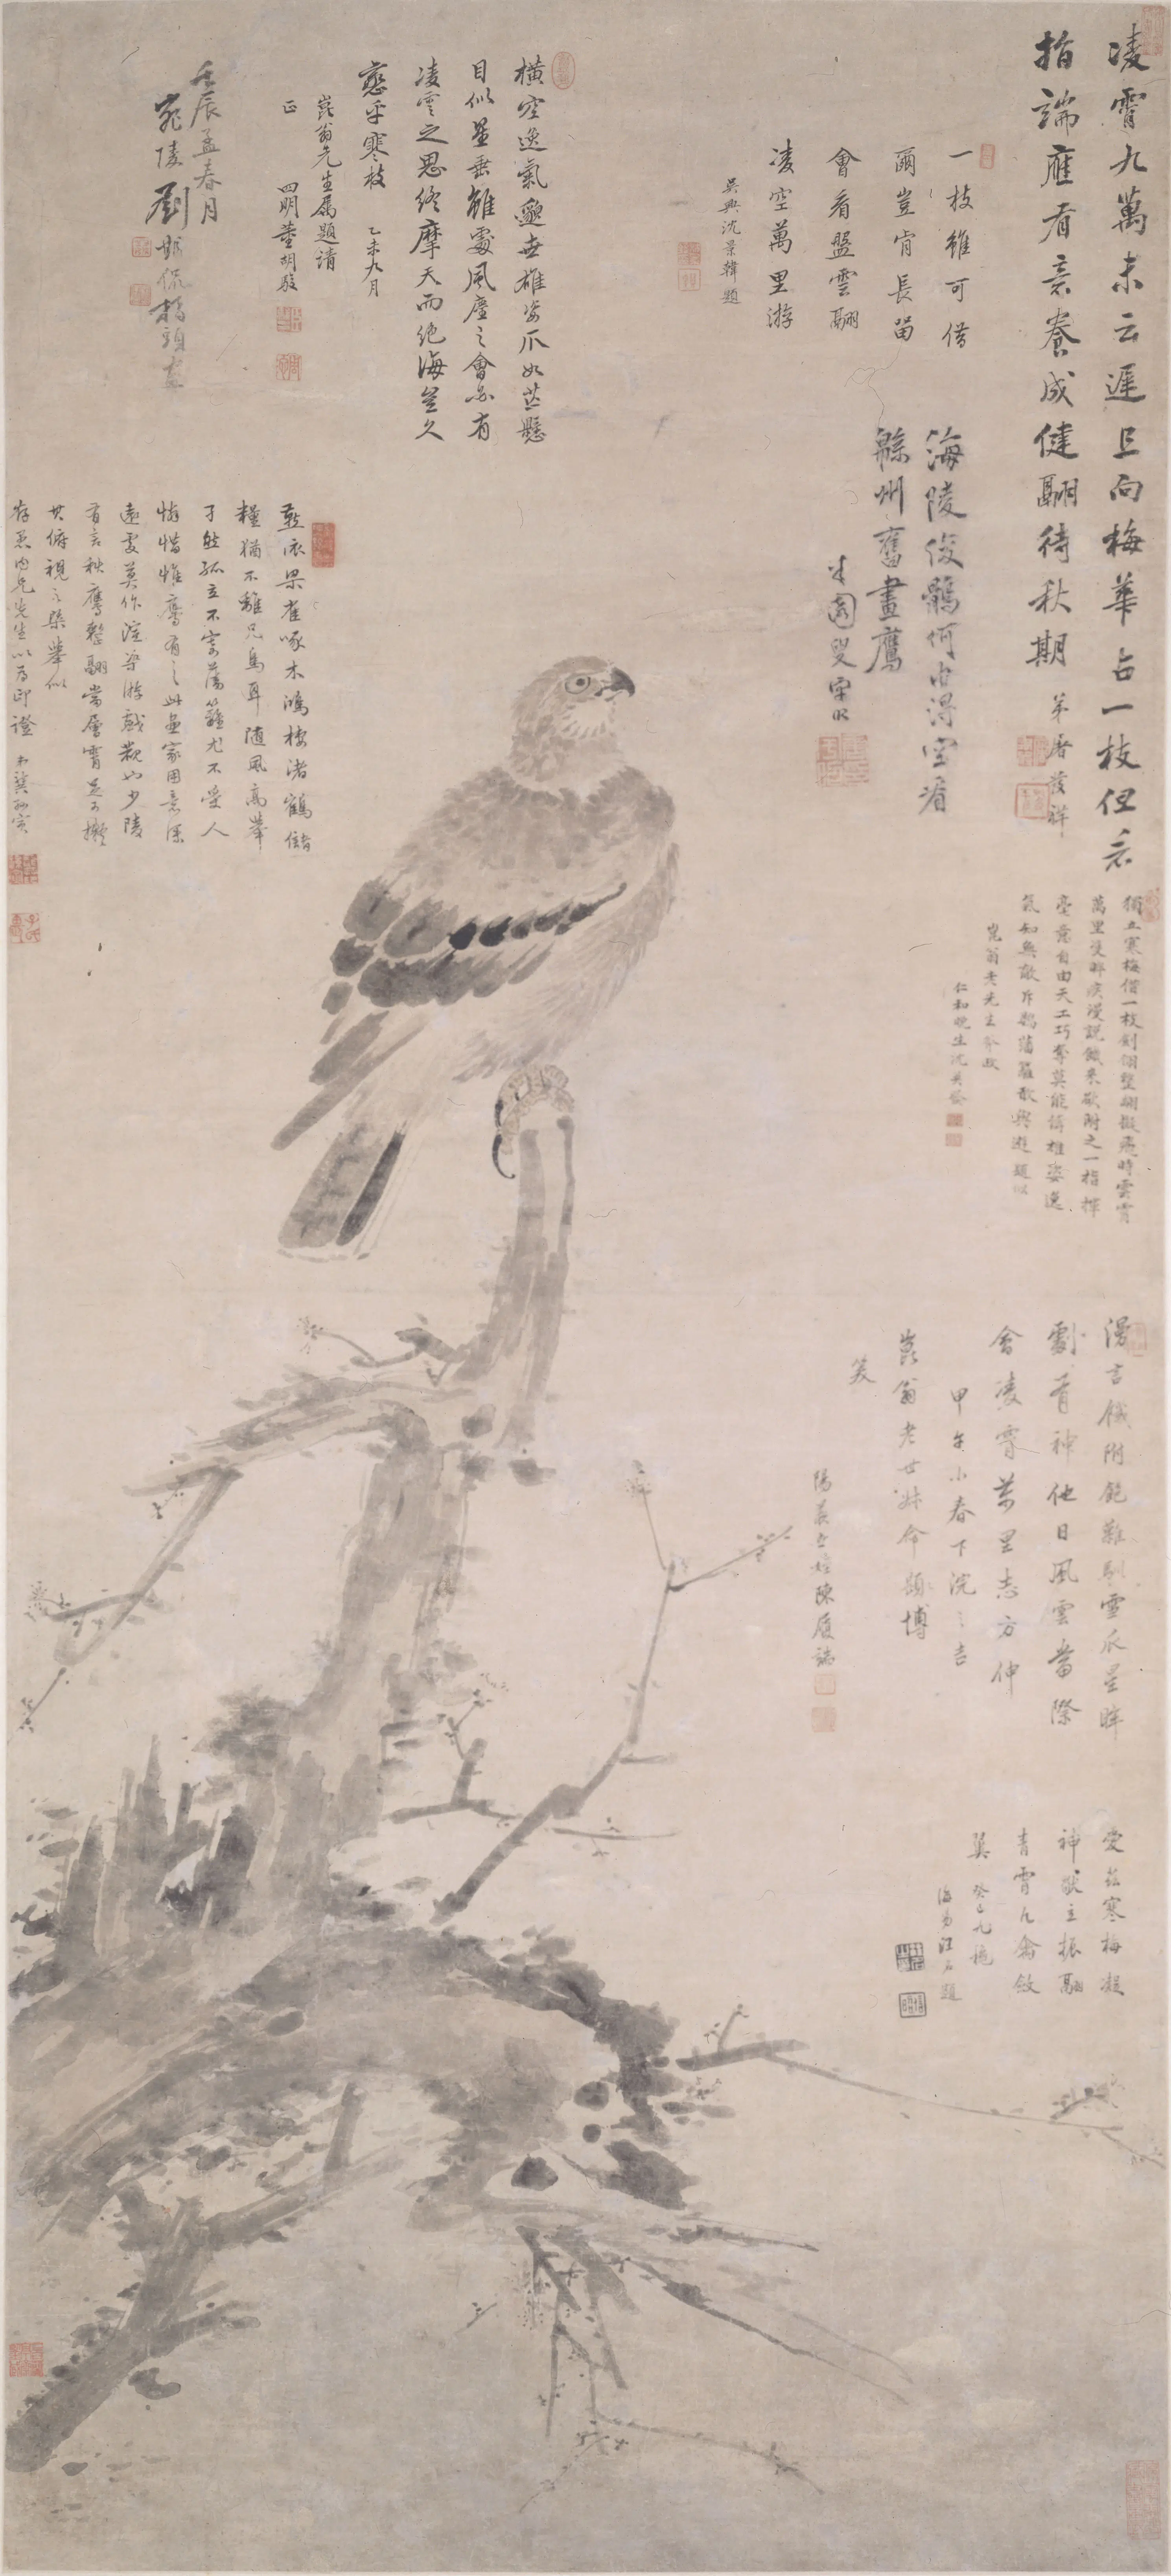 凌霄九萬未云遲且向梅華占一枝但看
指端應有意養成健翮待秋期
弟屠茂祥
一枝雖可借
爾豈肯長留
會看盤雲翮
凌空萬里游
吳興沈景韓題
海陵俊鶻何由得空有
緜州舊畫鷹
半園叟
橫空逸氣邈無雄姿爪如茫懸
目似星垂雖處風塵之會亦有
凌雲之思終摩天而絕海豈久
戀乎寒枝
乙未九月
崑翁先生屬題請
正
四明董胡駿
壬辰孟春月
宛陵劉
指頭畫
燕依梁雀啄木鴻棲渚鶴儲
糧猶不離凡鳥耳隨風高舉
孑然孤立不寄藩籬尤不受人
憐惜惟鷹有之此畫家用意深
遠處莫作渲染游戲觀如少陵
有言秋鷹整翮當層霄足可擬
其俯視之槩舉似
存愚內兄先生以為印證
獨立寒梅借一枝劍翎整翮擬飛時雲霄
萬里雙眸疾漫說饑來欲附之一指揮
毫意自由天工巧奪莫能儔雄姿逸
氣知無敵斥鷃藩籬敢與遊題以
崑翁老先生
仁和晚生沈
漫言饑附飽難馴雪爪星眸
劇有神他日風雲當際
會凌霄萬里志方伸
甲午小春下浣之吉
崑翁老世叔命題博
笑
陳履端
愛茲寒梅凝
神獨立振翮
青霄凡禽斂
翼
癸巳九
海昌汪 題